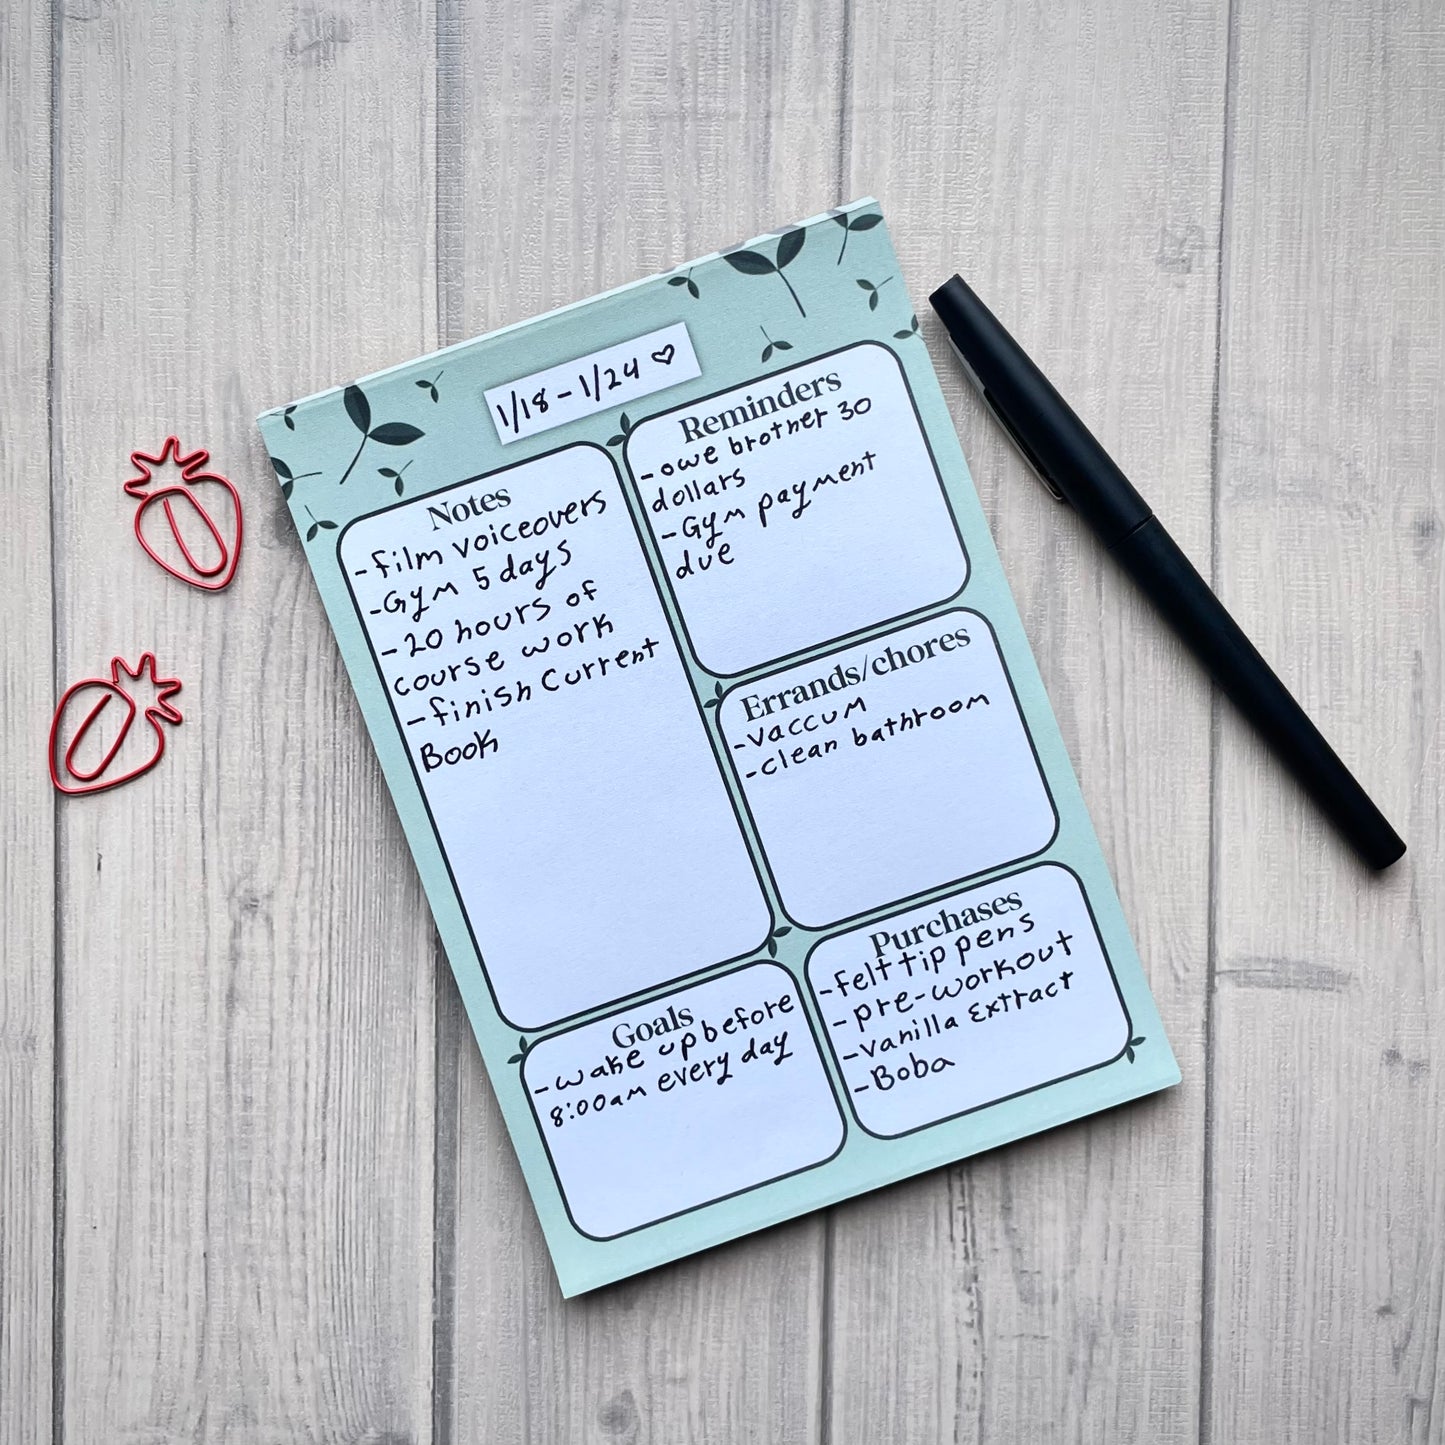 1/18 - 1/24 ♡
Notes
-film voiceovers
-Gym 5 days
-20 hours of
course work
-finish current
Book
Reminders
-owe brother 30
dollars
-Gym payment
due
Errands/chores
-vaccum
-clean bathroom
Goals
-wake up before
8:00am every day
Purchases
-felt tip pens
-pre-workout
-vanilla Extract
-Boba